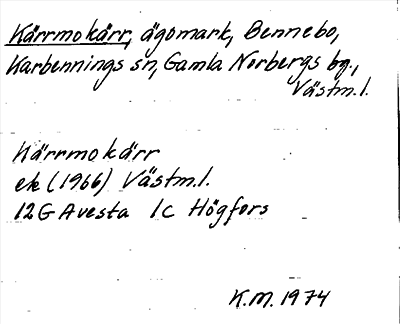 Kärrmokärr, ägomark, Bennebo,
Karbennings sn, Gamla Norbergs bg.,
Västm.l.
Kärrmokärr
ek (1966) Västm.l.
12G Avesta 1c Högfors
K.M. 1974